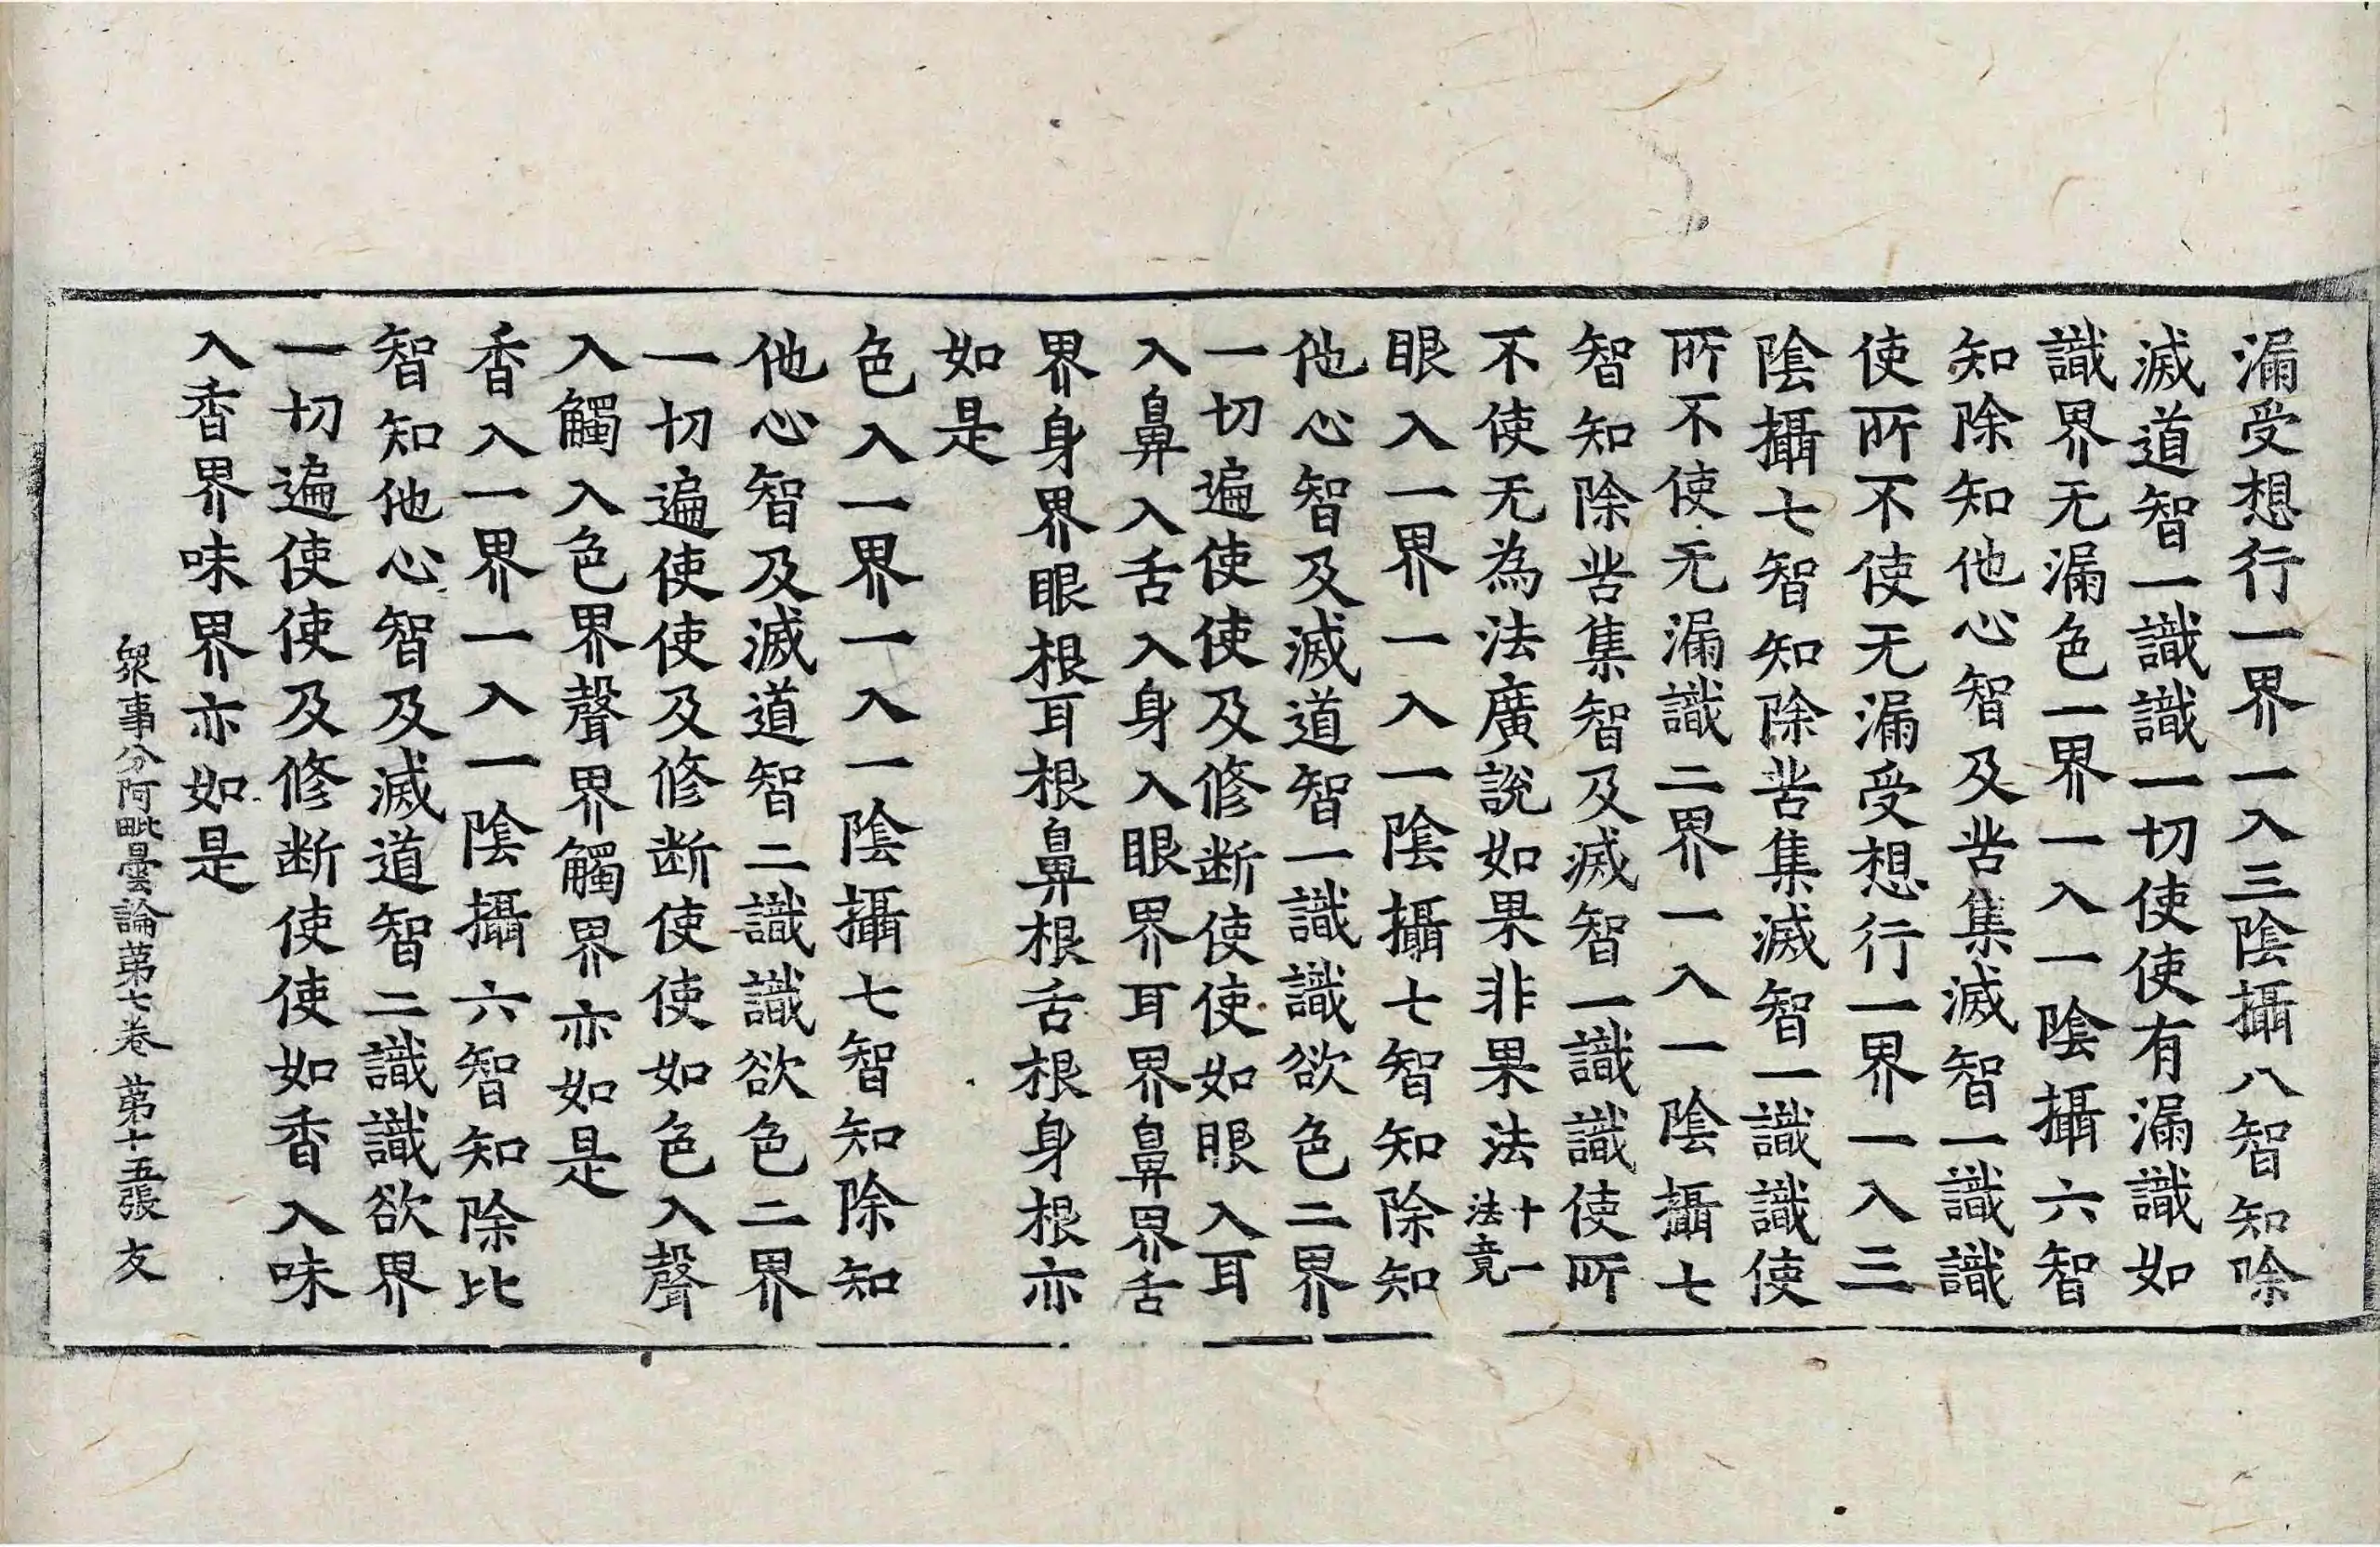 漏受想行一界一入三陰攝八智知除
滅道智一識識一切使使有漏識如
識界无漏色一界一入一陰攝六智
知除知他心智及苦集滅智一識識
使所不使无漏受想行一界一入三
陰攝七智知除苦集滅智一識識使
所不使无漏識二界一入一陰攝七
智知除苦集智及滅智一識識使所
不使无為法廣說如果非果法十一法竟
眼入一界一入一陰攝七智知除知
他心智及滅道智一識識欲色二界
一切遍使使及修断使使如眼入耳
入鼻入舌入身入眼界耳界鼻界舌
界身界眼根耳根鼻根舌根身根亦
如是
色入一界一入一陰攝七智知除知
他心智及滅道智二識識欲色二界
一切遍使使及修断使使如色入聲
入觸入色界聲界觸界亦如是
香入一界一入一陰攝六智知除比
智知他心智及滅道智二識識欲界
一切遍使使及修断使使如香入味
入香界味界亦如是
衆事分阿毗曇論苐七卷 苐十五張 友